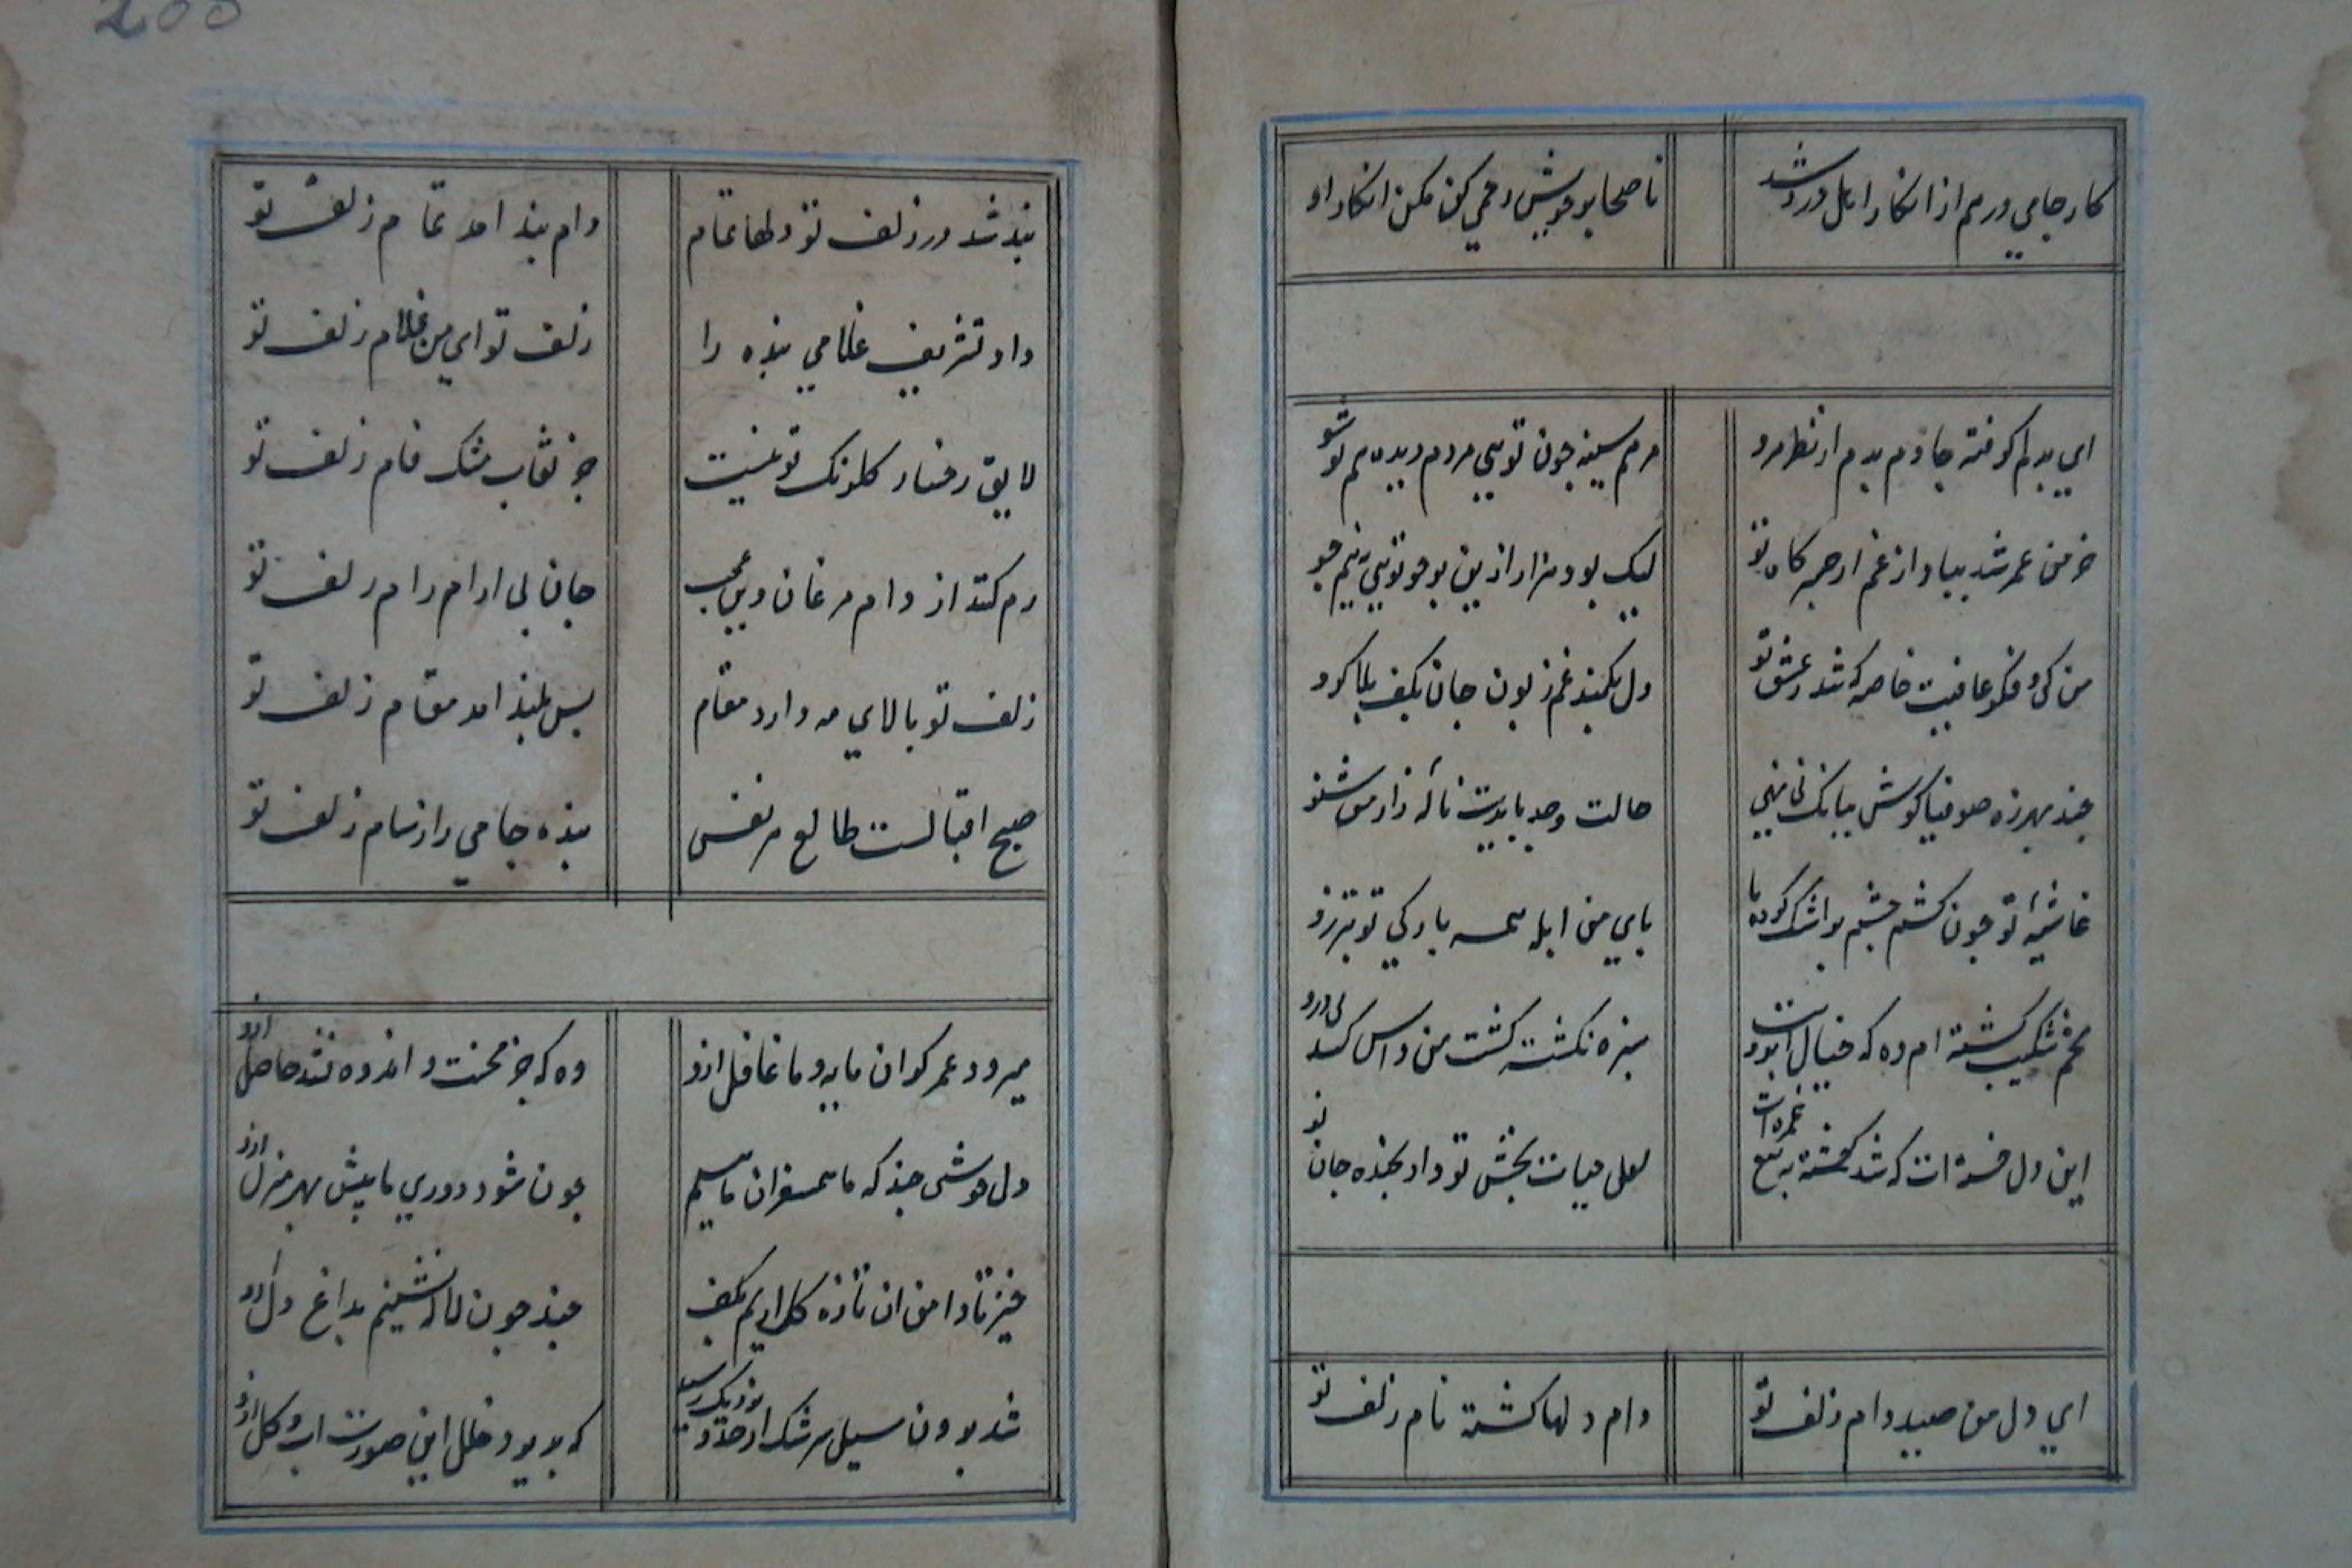 200
کار جامی درهم از انکار اهل درد شد
ناصحا بر خویش رحمی کن مکن انکار او
ای بدلم گرفته جا دم بدم از نظر مرو
مرهم سینه چون تویی مردم دیده هم تو شو
خرمن عمر شد بباد از غم ار چه کاه تو
لیک بود هزار ازین بر جو تو نیی نیم جو
من کی و فکر عافیت خاصه که شد ز عشق تو
دل بکمند غم زبون جان بکف بلا گرو
چند بهرزه صوفیا گوش ببانک نی نهی
حالت وجد بایدت نالهٔ زار من شنو
غاشیهٔ تو چون کشم چشم بر اشک کرده ما
پای من ابله همه بارگی تو تیزرو
تخم شکیب کشته ام وه که خیال ابرویت
سبزه نکشته کشت من داس کشد پی درو
این دل خسته ات که شد کشته به تیغ غمزه ات
لعل حیات بخش تو داد بخنده جان نو
ای دل من صید دام زلف تو
دام دلها کشته نام زلف تو
بند شد در زلف تو دلها تمام
دام بند امد تمام زلف تو
داد تشریف غلامی بنده را
زلف تو ای من غلام زلف تو
لایق رخسار کلرنک تو نیست
جز نقاب مشک فام زلف تو
رم کند از دام مرغان وین عجب
جان بی ارام رام زلف تو
زلف تو بالای مه دارد مقام
بس بلند امد مقام زلف تو
صبح اقبالست طالع هر نفس
بنده جامی را ز شام زلف تو
میرود عمر کران مایه و ما غافل ازو
وه که جز محنت و اندوه نشد حاصل ازو
دل خوشی چند که ما همسفران ماییم
چون شود دوری ما بیش بهر منزل ازو
خیز تا دامن ان تازه کل اریم بکف
چند چون لاله نشینیم بداغ دل ازو
شد برون سیل سرشک از حد و نزدیک رسید
که بر بود خلل این صورت اب و کل ازو